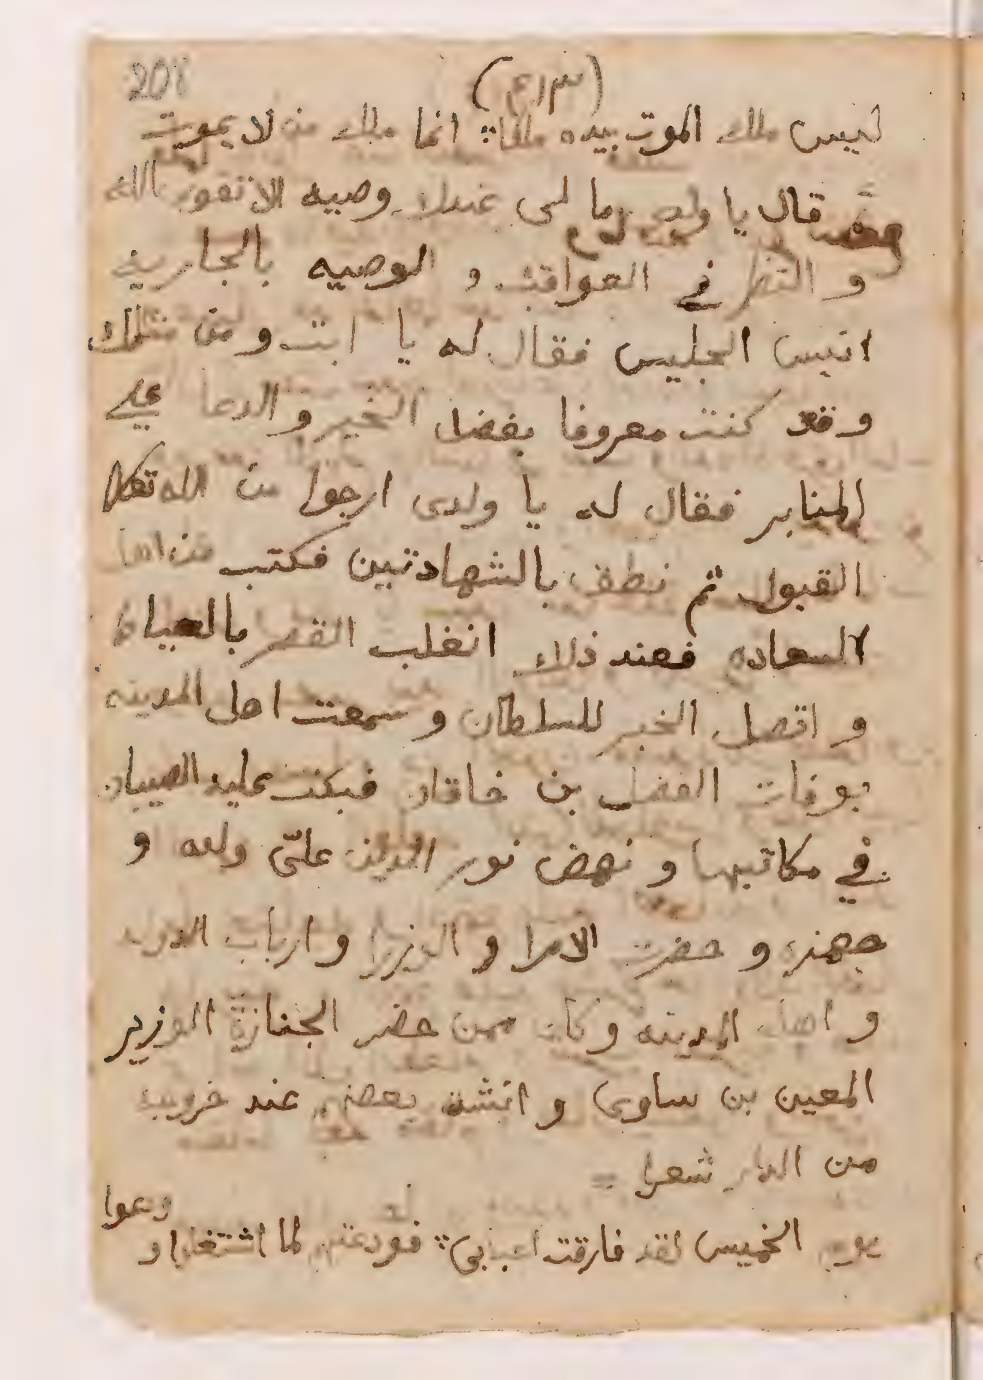 208
ليس ملك الموت بيده ملكا انما ملك من لا يموت
قال يا ولدي ما لي عندك وصيه الا تقوى الله
و النظر في العواقب و الوصيه بالجاريه
انيس الجليس فقال له يا ابت و من مثلك
و قد كنت معروفا بفضل الخير و الدعا على
المنابر فقال له يا ولدى ارجوا من الله تعالا
القبول ثم نطق بالشهادتين فكتب من اهل
السعاده فعند ذلك انغلب القصر بالعياط
و اتصل الخبر للسلطان و سمعت اهل المدينه
بوفات الفضل بن خاقان فبكت عليه الصيبان
في مكاتبها و نهض نور الدين علىّ ولده و
جهزه و حضرت الامرا و الوزرا و ارباب الدوله
و اهل المدينه و كان ممن حضر الجنازة الوزير
المعين بن ساوى و انشد بعضهم عند خروجه
من الدار شعرا =
يوم الخميس لقد فارقت احبابي فودعتهم لما اشتغلوا و
ودعوا